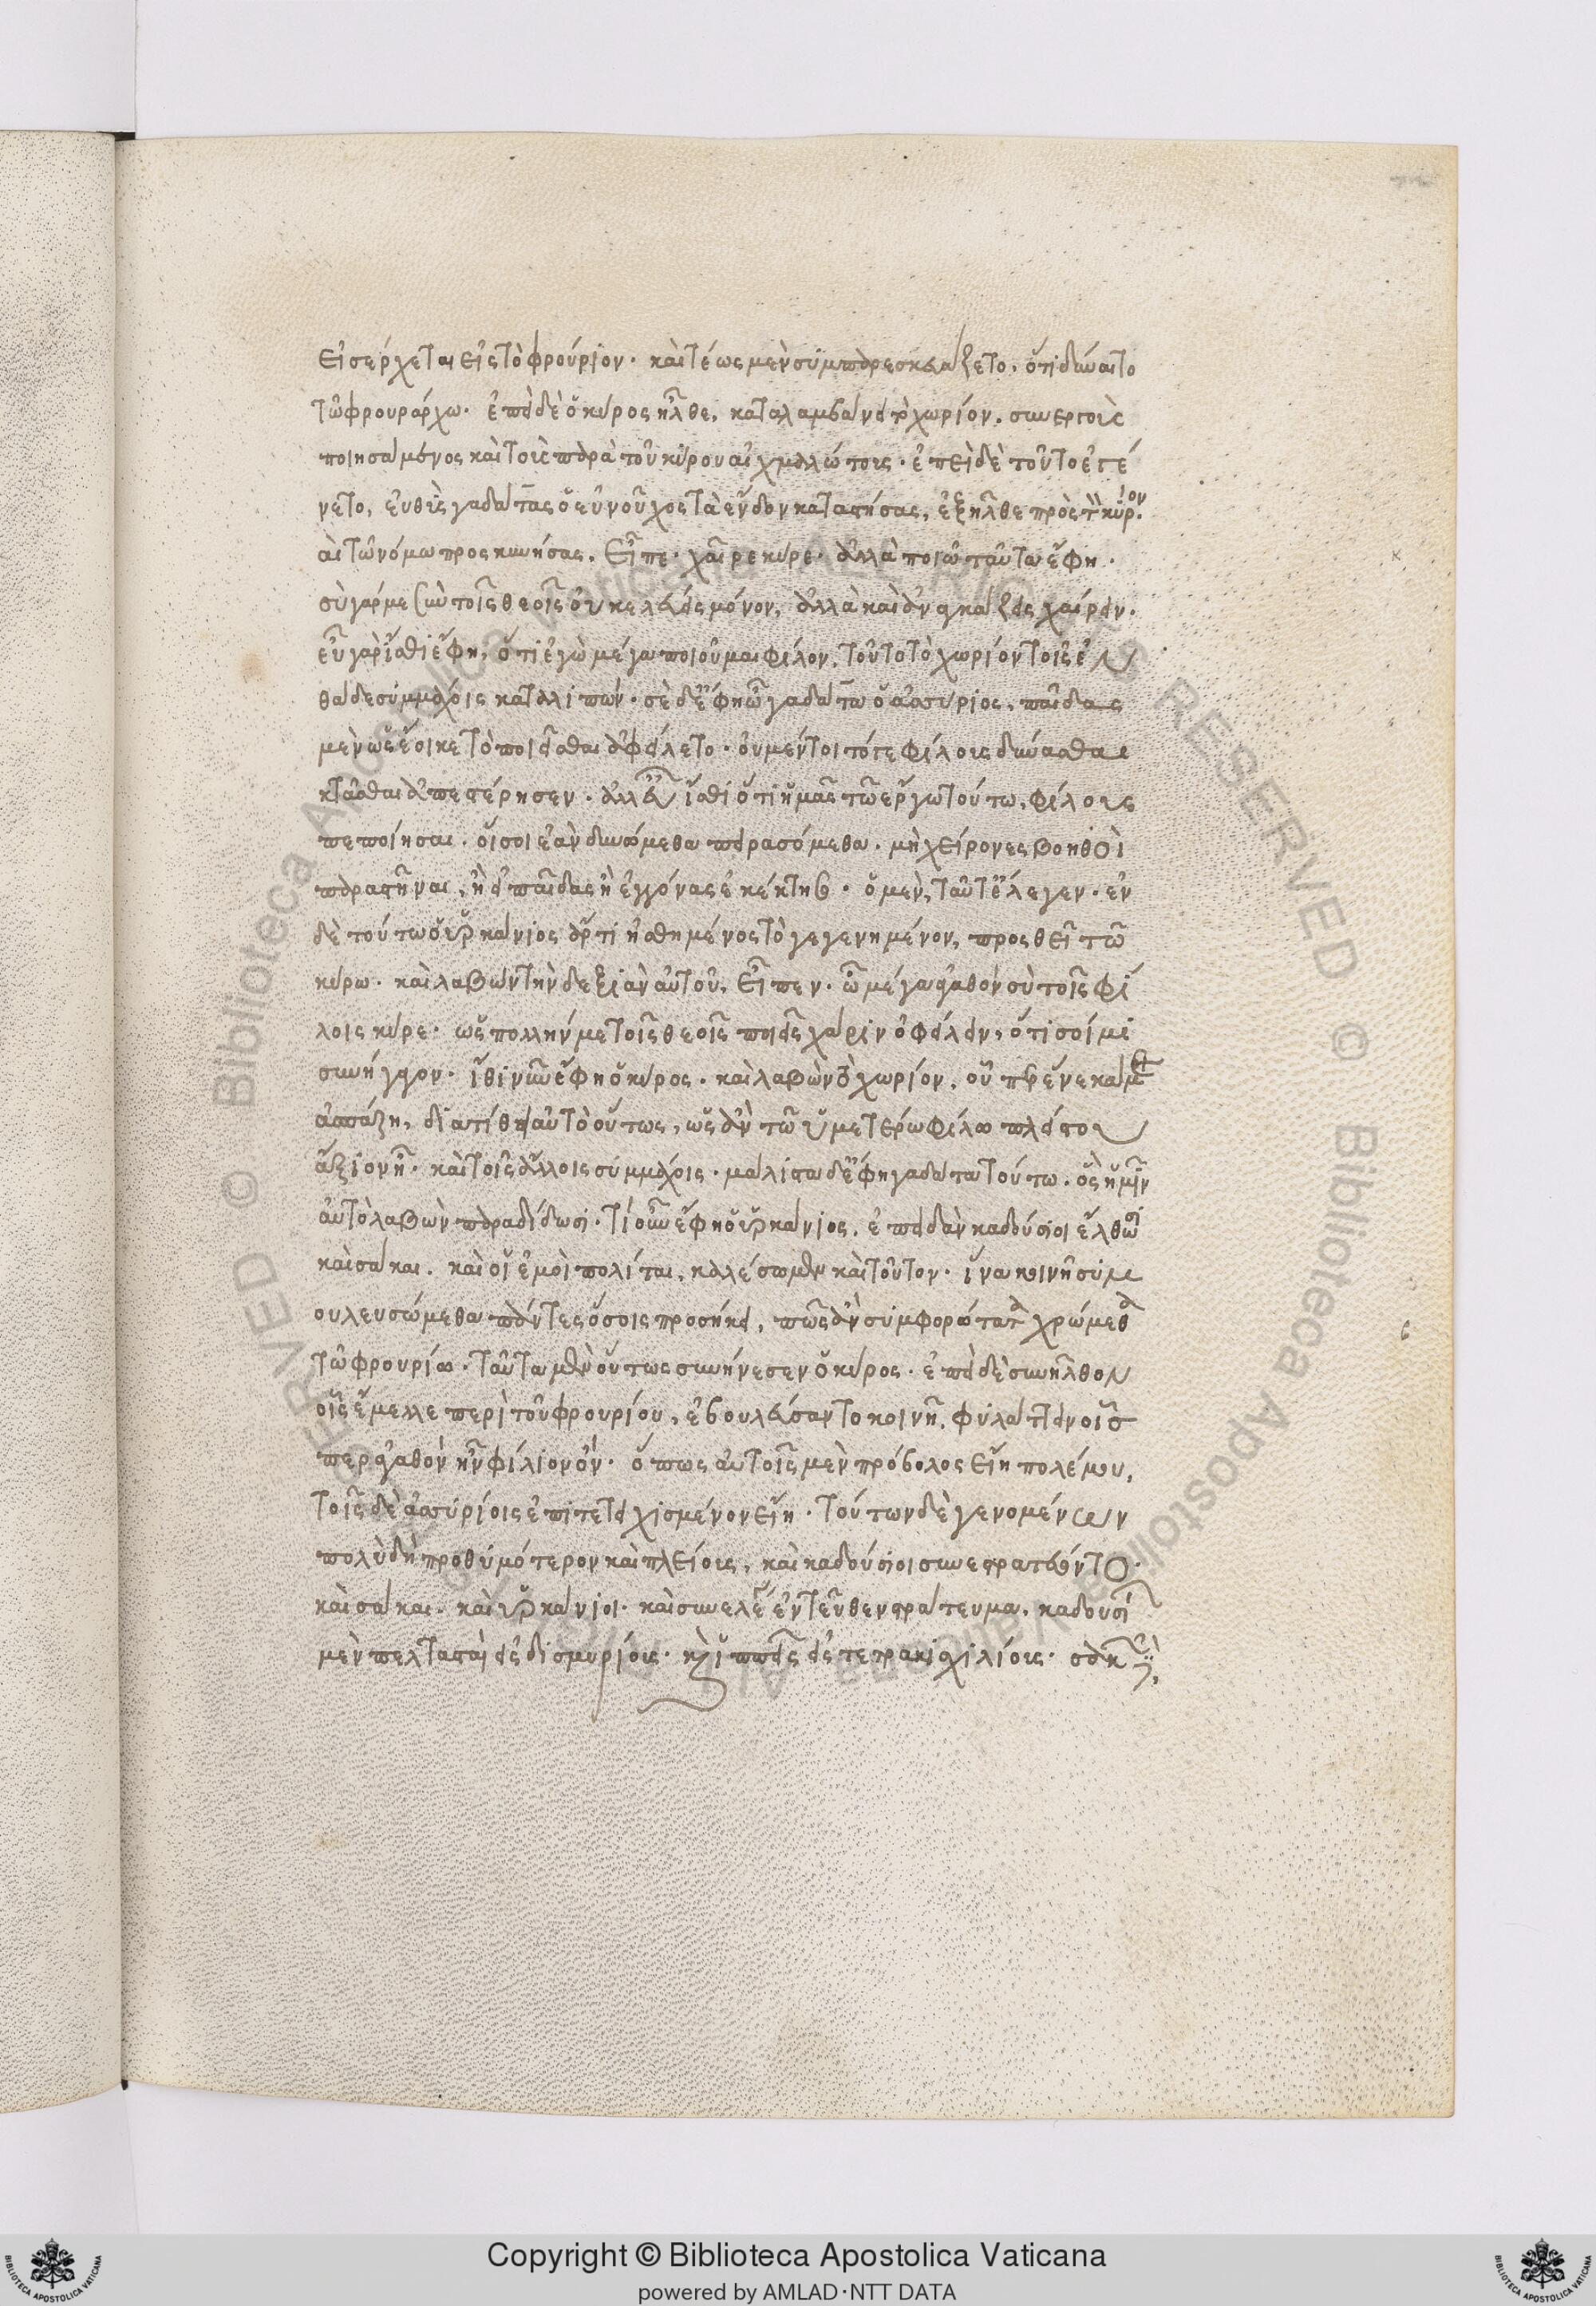 εἰσέρχεται εἰς τὸ φρούριον. καὶ τέως μὲν συμπαρεσκευάζετο, ὅτι δύναιτο
τῶ φρουράρχω. ἐπεὶ δὲ ὁ κύρος ἦλθε, καταλαμβάνει τὸ χωρίον, συνεργοὺς
ποιησάμενος καὶ τοὺς παρὰ τοῦ κύρου αἰχμαλώτους. ἐπεὶ δὲ τοῦτο ἐγέ
νετο, εὐθὺς γαδάτας ὁ εὐνοῦχος τὰ ἔνδον καταστήσας, ἐξῆλθε πρὸς τὸν κῦρον.
τῶ νόμω προσκυνήσας, εἶπε. χαῖρε κύρε. ἀλλὰ ποιῶ ταῦτα ἔφη.
σὺ γάρ με σὺν τοῖς θεοῖς οὐ κελεύεις μόνον, ἀλλὰ καὶ ἀναγκάζεις χαίρειν.
εὖ γὰρ ἴσθι ἔφη, ὅτι ἐγὼ μέγα ποιοῦμαι φίλον, τοῦτο τὸ χωρίον τοῖς ἐν
θάδε συμμάχοις καταλιπών. σὲ δ' ἔφη ὦ γαδάτα ὁ ἀσσύριος, παῖδας
μὲν ὡς ἔοικε τὸ ποιεῖσθαι ἀφείλετο. οὐ μέντοι τό γε φίλους δύνασθαι
κτᾶσθαι ἀπεστέρησεν. ἀλλ' εὖ ἴσθι ὅτι ἡμᾶς τῶ ἔργω τούτω, φίλους
πεποίησαι. οἵ σοι ἐὰν δυνώμεθα πειρασόμεθα. μὴ χείρονες βοηθοὶ
παραστῆναι, ἢ εἰ παῖδας ἢ ἐγγόνας ἐκέκτησο. ὁ μὲν, ταῦτ' ἔλεγεν. ἐν
δὲ τούτω ὁ ὑρκάνιος ἄρτι ἠσθημένος τὸ γεγενημένον, προσθεῖ τῶ
κύρω. καὶ λαβὼν τὴν δεξιὰν αὐτοῦ, εἶπεν. ὦ μέγα ἀγαθὸν σὺ τοῖς φί
λοις κύρε. ὡς πολλήν με τοῖς θεοῖς ποιεῖς χάριν ὀφείλειν, ὅτι σοί με
συνήγαγον. ἴθι νῦν ἔφη ὁ κύρος. καὶ λαβὼν τὸ χωρίον, οὗπερ ἕνεκά με
ἀσπάζη, διατίθει αὐτὸ οὕτως, ὡς ἂν τῶ ὑμετέρω φύλω πλείστου
ἄξιον ἦ. καὶ τοῖς ἄλλοις συμμάχοις. μάλιστα δ' ἔφη γαδάτα τούτω. ὃς ἡμῖν
αὐτὸ λαβὼν παραδίδωσι. τί οὖν ἔφη ὁ ὑρκάνιος, ἐπειδὰν καδούσιοι ἔλθωσι
καὶ σάκαι. καὶ οἱ ἐμοὶ πολίται, καλέσωμεν καὶ τοῦτον. ἵνα κοινῆ συμ
βουλευσώμεθα πάντες ὅσοις προσήκει, πῶς ἂν συμφορώτατα χρώμεθα
τῶ φρουρίω. ταῦτα μὲν οὕτως συνήνεσεν ὁ κύρος. ἐπεὶ δὲ συνῆλθον
οἷς ἔμελλε περὶ τοῦ φρουρίου, ἐβουλεύσαντο κοινῆ, φυλάττειν οἷσ
περ ἀγαθὸν ἦν φίλιον ὄν. ὅπως αὐτοῖς μὲν πρόβολος εἴη πολέμου,
τοῖς δὲ ἀσσυρίοις ἐπιτετειχισμένον εἴη. τούτων δὲ γενομένων
πολὺ δὴ προθυμότερον καὶ πλείους, καὶ καδούσιοι συνεστρατεύοντο.
καὶ σάκαι. καὶ ὑρκάνιοι. καὶ συνελέγη ἐντεῦθεν στράτευμα. καδουσίων
μὲν πελτασταὶ εἰς δισμυρίους. καὶ ἱππεῖς εἰς τετρακισχιλίους. σακῶν